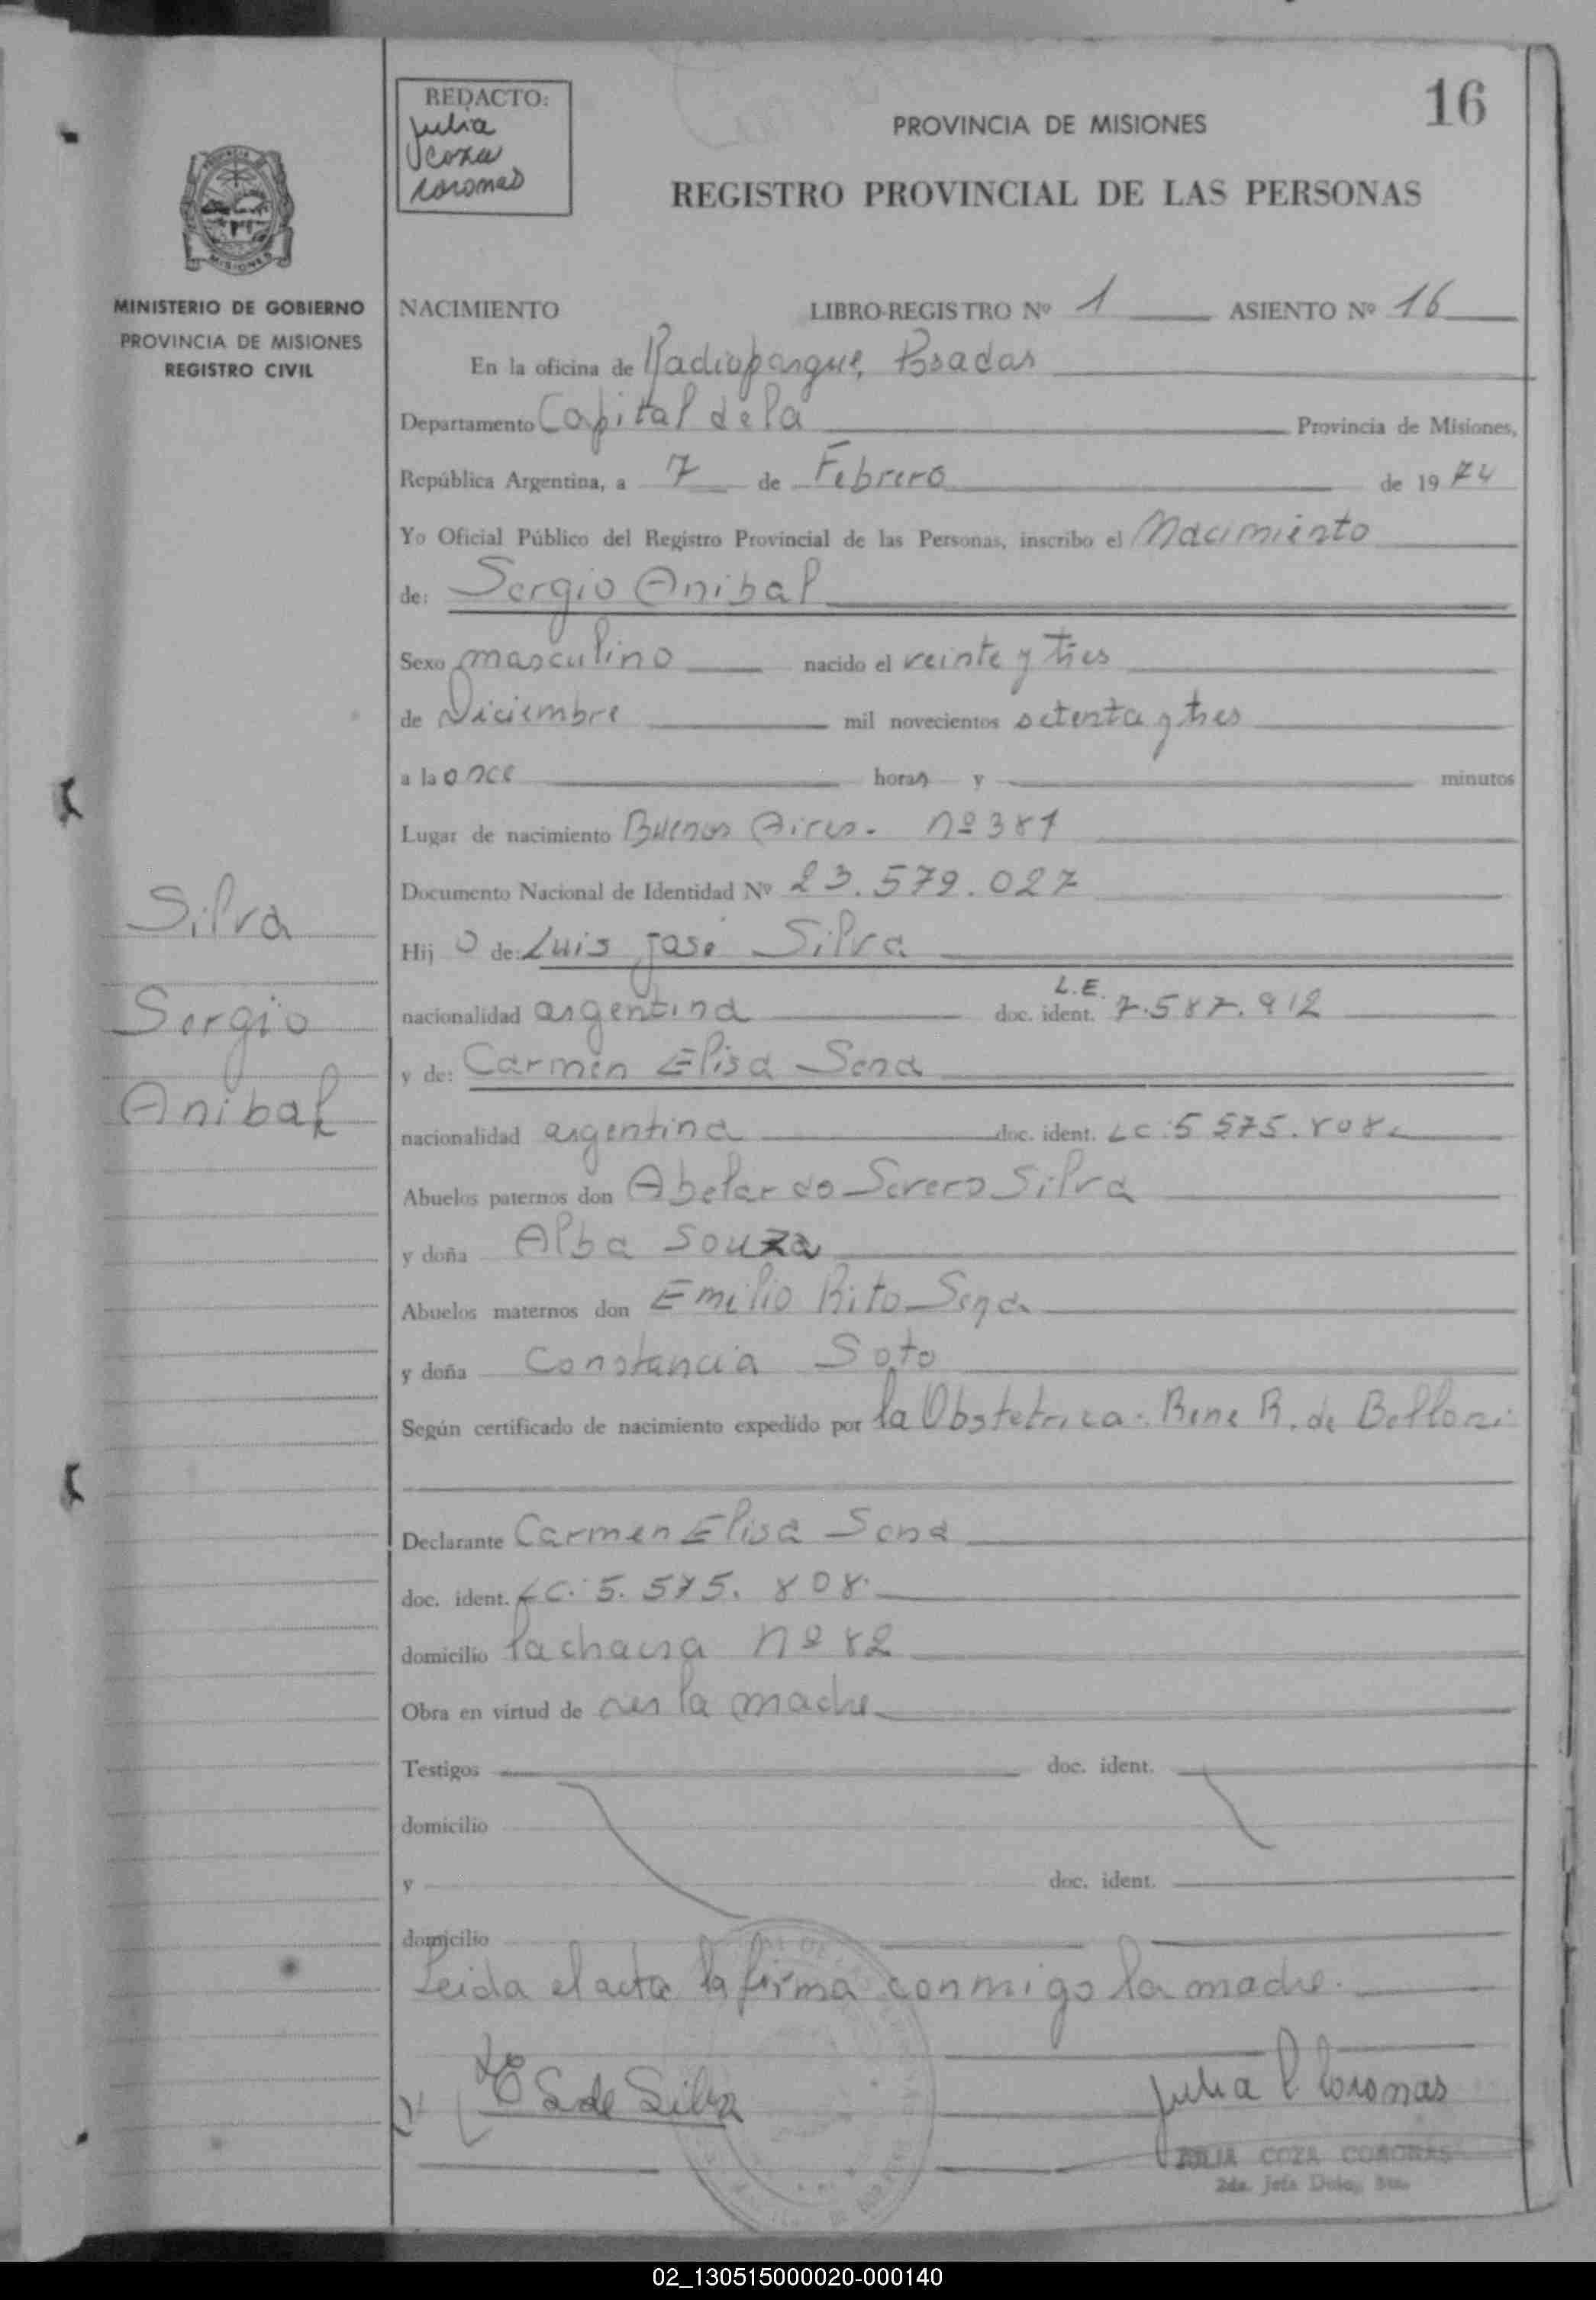 16
REDACTO:
Julia
Coza
Coromas
PROVINCIA DE MISIONES
REGISTRO PROVINCIAL DE LAS PERSONAS
MISIONES
MINISTERIO DE GOBIERNO
PROVINCIA DE MISIONES
REGISTRO CIVIL
NACIMIENTO LIBRO-REGISTRO Nº 1 ASIENTO Nº 16
En la oficina de Radioparque, Posadas
Departamento Capital de la Provincia de Misiones,
República Argentina, a 7 de Febrero de 1974
Yo Oficial Público del Registro Provincial de las Personas, inscribo el Nacimiento
de: Sergio Anibal
Sexo masculino nacido el veinte y tres
de Diciembre mil novecientos setenta y tres
a la once horas y minutos
Lugar de nacimiento Buenos Aires. nº 381
Documento Nacional de Identidad Nº 23.579.027
Hij o de: Luis José Silva
L.E.
nacionalidad argentina doc. ident. 7.587.912
y de: Carmen Elisa Sena
nacionalidad argentina doc. ident. LC:5 575.808
Abuelos paternos don Abelardo Severo Silva
y doña Alba Souza
Abuelos maternos don Emilio Rito Sena
y doña Constancia Soto
Según certificado de nacimiento expedido por la Obstetrica: Rene R. de Belloni
Declarante Carmen Elisa Sena
doc. ident. LC.:5.575.808
domicilio la chacra nº 82
Obra en virtud de ser la madre
Testigos doc. ident.
domicilio
y doc. ident.
domicilio
Leida el acta la firma conmigo la madre.
Silva
Sergio
Anibal
S de Silva
Julia C. Coromas
JULIA COZA COROMAS
2da. Jefa
02_130515000020-000140